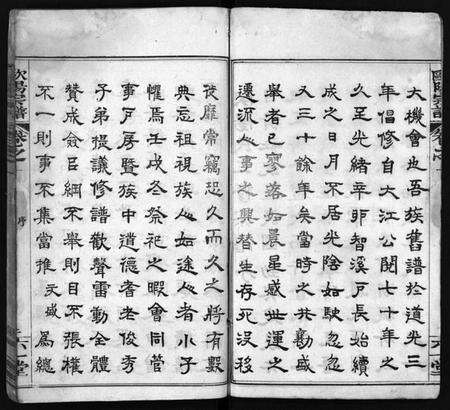 歐陽宗譜
卷之一
六一堂
大機會也吾族舊譜於道光三
年倡修自大江公閱七十年之
久至光緒辛卯智溪戸長始續
成之日月不居光陰如駛忽忽
又三十餘年矣當時之共勷盛
事者已寥落如晨星感世運之
遷流人事之興替生存死没移
夜靡常竊恐久而久之將有數
典忘祖視族人如途人者小子
懼焉壬戌冬祭祀之暇會同管
事戸房暨族中道德耆老俊秀
子弟提議修譜歡聲雷動全體
贊成僉曰綱不舉則目不張權
不一則事不集當推爲總
歐陽宗譜
卷之一
序
六一堂